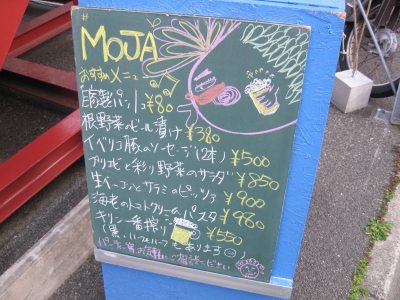 MOJA
おすすめメニュー
自家製パン 1コ ¥80
根野菜のビール漬け ¥380
イベリコ豚のソーセージ(2本) ¥500
アツエビと彩り野菜のサラダ ¥850
生ベーコンとサラミのピッツァ ¥900
海老のトマトクリームパスタ ¥980
キリン一番搾り ¥550
(黒、ハーフ&ハーフもあります